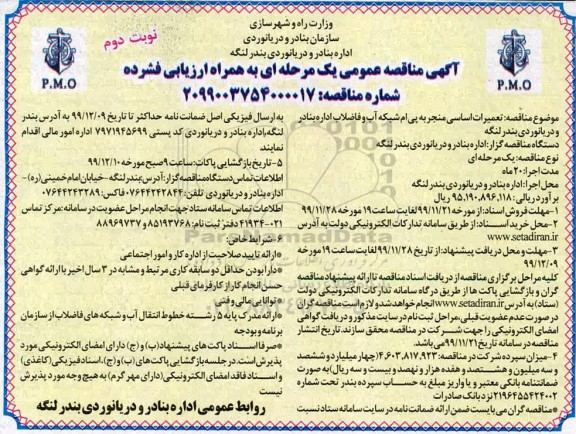 وزارت راه و شهرسازی
سازمان بنادر و دریانوردی
اداره بنادر و دریانوردی بندر لنگه
نوبت دوم
P.M.O
P.M.O
آگهی مناقصه عمومی یک مرحله ای به همراه ارزیابی فشرده
شماره مناقصه: ۲۰۹۹۰۰۳۷۵۴۰۰۰۰۱۷
موضوع مناقصه: تعمیرات اساسی منجر به پی ام شبکه آب و فاضلاب اداره بنادر
و دریانوردی بندر لنگه
دستگاه مناقصه گزار: اداره بنادر و دریانوردی بندر لنگه
نوع مناقصه: یک مرحله ای
مدت اجرا: ۲۰ ماه
محل اجرا: اداره بنادر و دریانوردی بندر لنگه
برآورد ریالی: ۹۵,۱۹۰,۸۹۶,۱۱۸ ریال
۱-مهلت فروش اسناد: از مورخه ۹۹/۱۱/۲۱ لغایت ساعت ۱۹ مورخه ۹۹/۱۱/۲۸
۲-محل خرید اسناد: از طریق سامانه تدارکات الکترونیکی دولت به آدرس
www.setadiran.ir
۳-مهلت و محل دریافت پیشنهاد: از تاریخ ۹۹/۱۱/۲۸ لغایت ساعت ۱۹ مورخه
۹۹/۱۲/۰۹
کلیه مراحل برگزاری مناقصه از دریافت اسناد مناقصه تا ارائه پیشنهاد مناقصه
گران و بازگشایی پاکت ها از طریق درگاه سامانه تدارکات الکترونیکی دولت
(ستاد) به آدرس www.setadiran.ir انجام خواهد شد و لازم است مناقصه گران
در صورت عدم عضویت قبلی، مراحل ثبت نام در سایت مذکور و دریافت گواهی
امضای الکترونیکی را جهت شرکت در مناقصه محقق سازند. تاریخ انتشار
مناقصه در سامانه تاریخ ۹۹/۱۱/۲۱ می باشد.
۴-میزان سپرده شرکت در مناقصه: ۴,۶۰۳,۸۱۷,۹۲۳ (چهار میلیارد و ششصد
و سه میلیون و هشتصد و هفده هزار و نهصد و بیست و سه ریال) به صورت
ضمانتنامه بانکی معتبر و یا واریز مبلغ به حساب سپرده بندر تحت شماره
۲۱۹۶۴۵۵۴۲۴۰۰۲ نزد بانک صادرات
*مناقصه گران می بایست ضمن ارائه ضمانت نامه در سایت سامانه ستاد نسبت
به ارسال فیزیکی اصل ضمانت نامه حداکثر تا تاریخ ۹۹/۱۲/۰۹ به آدرس بندر
لنگه، اداره بنادر و دریانوردی کد پستی ۷۹۷۱۹۴۵۶۹۹ اداره امور مالی اقدام
نمایند
۵-تاریخ بازگشایی پاکات: ساعت ۹ صبح مورخه ۹۹/۱۲/۱۰
اطلاعات تماس دستگاه مناقصه گزار: آدرس: بندر لنگه-خیابان امام خمینی (ره)-
اداره بنادر و دریانوردی تلفن: ۰۷۶۴۴۲۴۲۸۴۴ فاکس: ۰۷۶۴۴۲۴۳۲۸۹
اطلاعات تماس سامانه ستاد جهت انجام مراحل عضویت در سامانه: مرکز تماس
۰۲۱-۴۱۹۳۴ دفتر ثبت نام: ۸۵۱۹۳۷۶۸ و ۸۸۹۶۹۷۳۷
۶-شرایط خاص:
*ارائه تایید صلاحیت از اداره کار و امور اجتماعی
*دارا بودن حداقل دو سابقه کاری مرتبط و مشابه در ۳ سال اخیر با ارائه گواهی
حسن انجام کار از کارفرمای قبلی
*توانایی مالی و فنی
*ارائه مدرک پایه ۵ رشته خطوط انتقال آب و شبکه های فاضلاب از سازمان
برنامه و بودجه
*صرفا اسناد پاکت های پیشنهاد (ب) و (ج) دارای امضای الکترونیکی مورد
پذیرش است. در جلسه بازگشایی پاکت های (ب) و (ج)، اسناد فیزیکی (کاغذی)
و اسناد فاقد امضای الکترونیکی (دارای مهر گرم) به هیچ وجه مورد پذیرش
نیست
روابط عمومی اداره بنادر و دریانوردی بندر لنگه
ParsNamadData